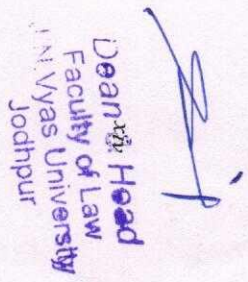 Dean & Head
Faculty of Law
J.N Vyas University
Jodhpur